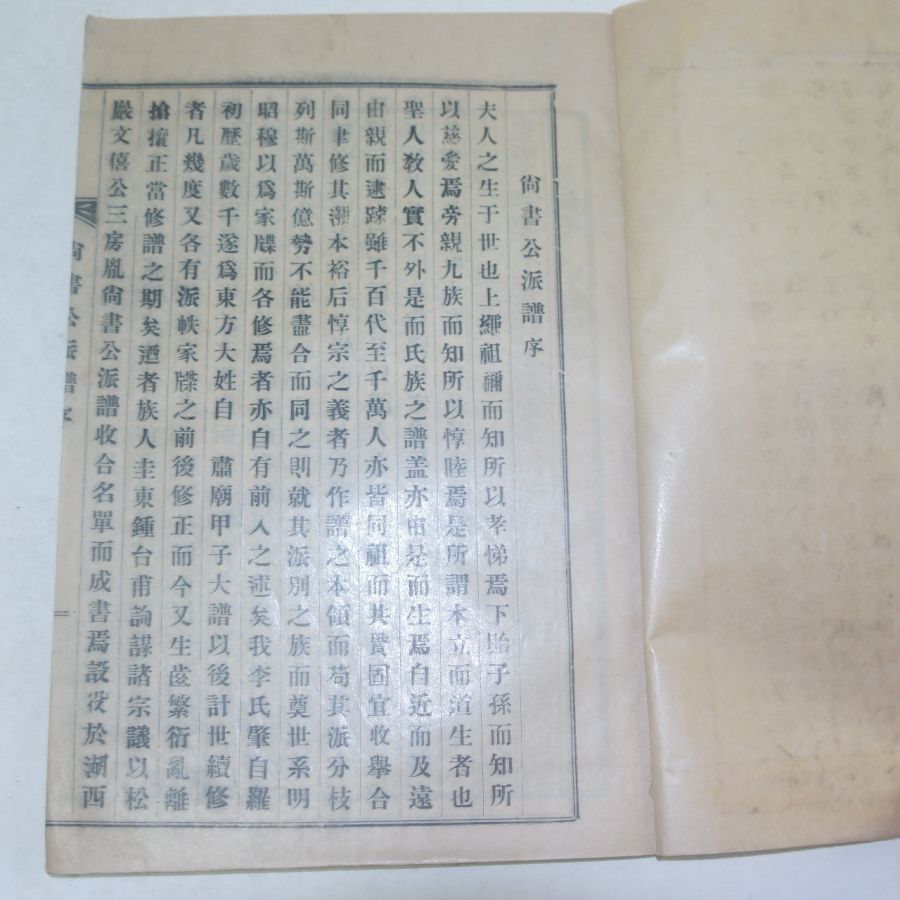 尙書公派譜序
夫人之生于世也上繩祖禰而知所以孝悌焉下貽子孫而知所
以慈愛焉旁親九族而知所以惇睦焉是所謂本立而道生者也
聖人敎人實不外是而氏族之譜盖亦由是而生焉自近而及遠
由親而逮踈雖千百代至千萬人亦皆同祖而其貫固宜收擧合
同聿修其溯本裕后惇宗之義者乃作譜之本領而苟其派分枝
列斯萬斯億勢不能盡合而同之則就其派別之族而奠世系明
昭穆以爲家牒而各修焉者亦自有前人之述矣我李氏肇自羅
初歷歲數千遂爲東方大姓自 肅廟甲子大譜以後計世續修
者凡幾度又各有派帙家牒之前後修正而今又生齒繁衍亂離
搶攘正當修譜之期矣迺者族人圭東鍾台甫詢謀諸宗議以松
巖文僖公三房胤尙書公派譜收合名單而成書焉設役於湖西
尙書公派譜序